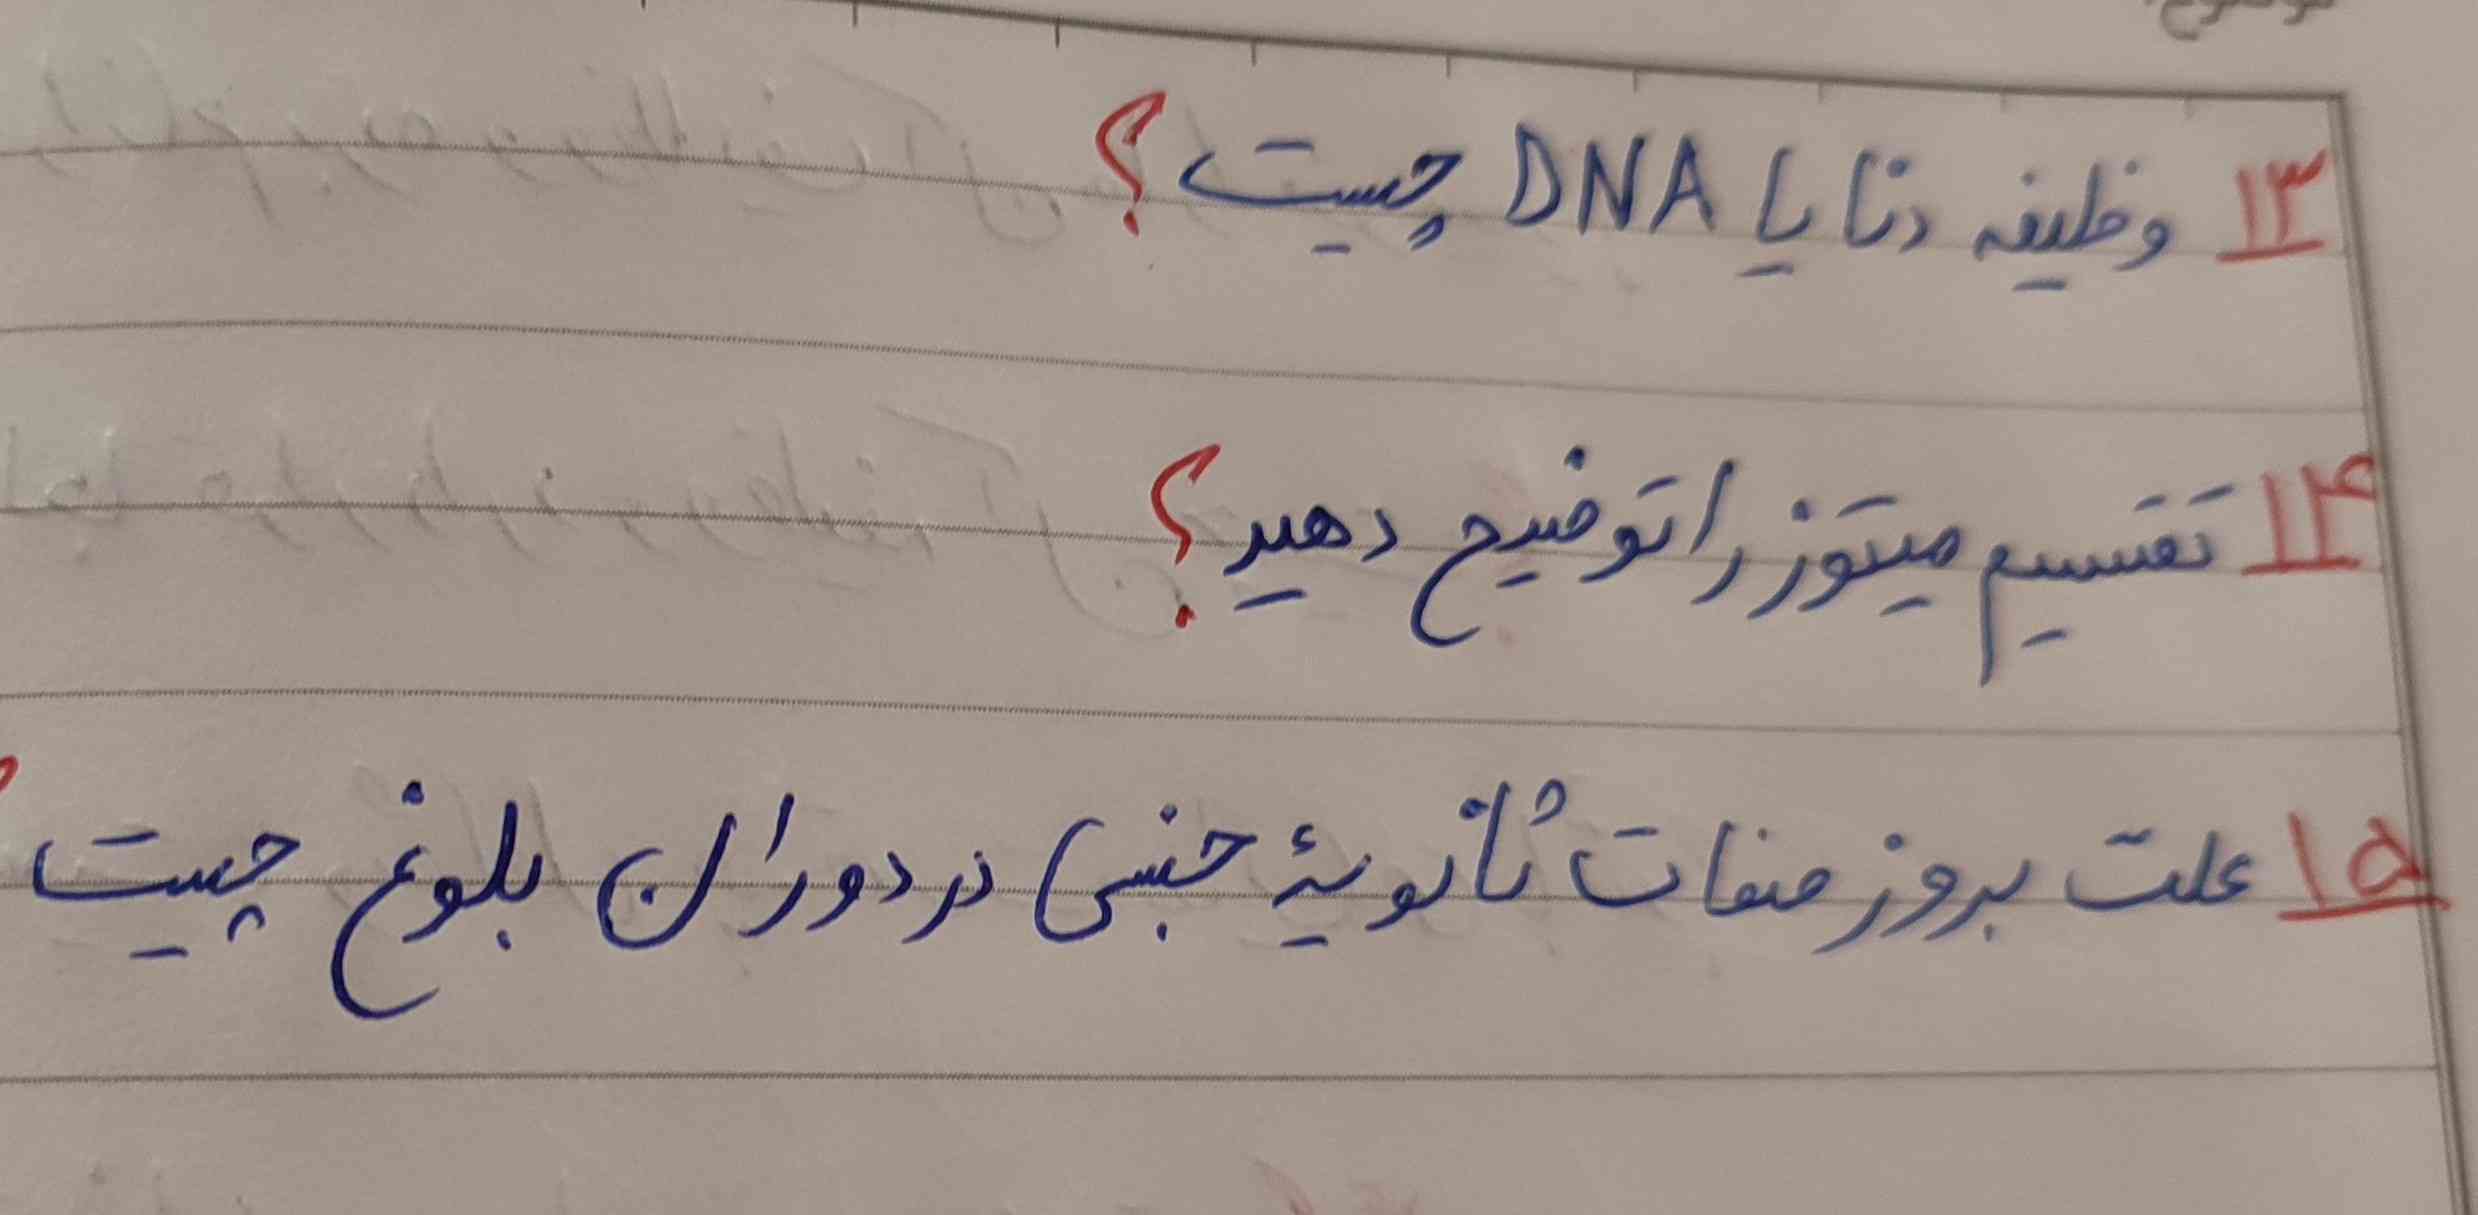 موضوع:
۱۳ وظیفه دنا یا DNA چیست؟
۱۴ تقسیم میتوز را توضیح دهید؟
۱۵ علت بروز صفات ثانویهٔ جنسی در دوران بلوغ چیست